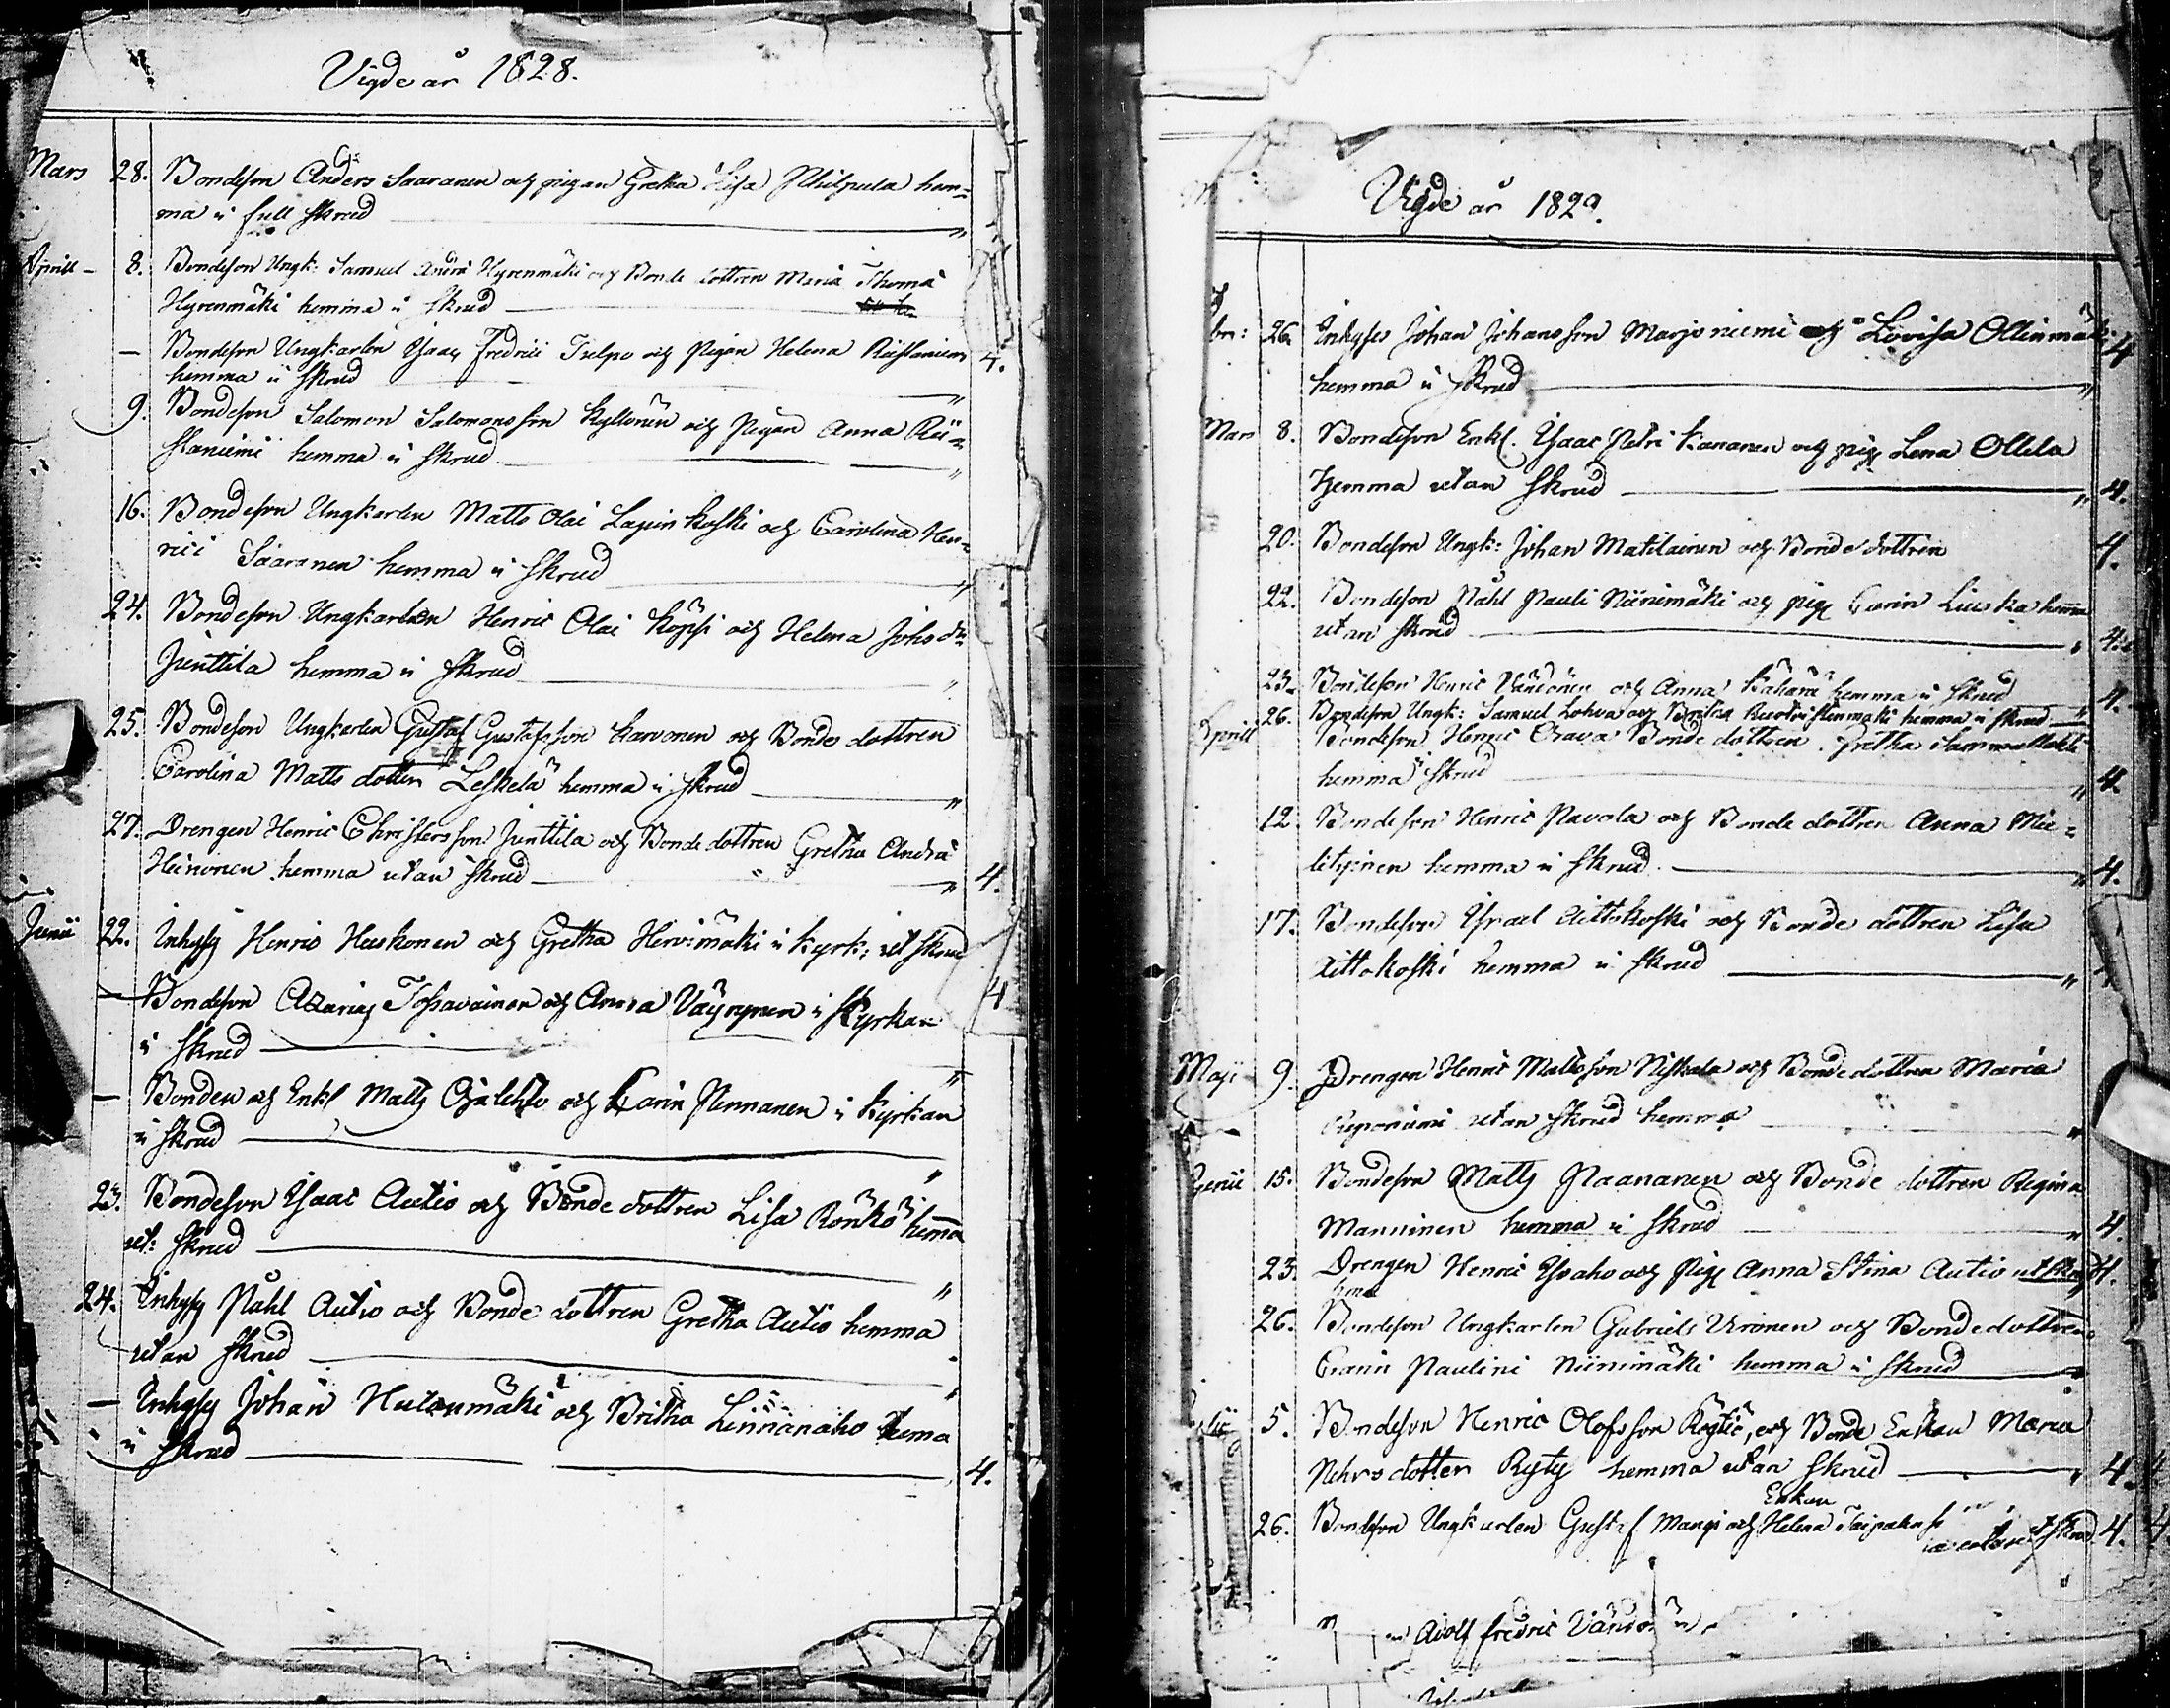 Vigde år 1828.
Mars 28. Bondeson Anders Saaranen och pigan Gretha Lisa Philpula hem=
ma i full skrud
Aprill - 8. Bondeson Ungk: Samuel Andræ Hyrenmäki och Bonde dottren Maria Thomæ
Hyrenmäki hemma i skrud
— Bondeson Ungkarlen Isaac Fredric Tulpo och Pigan Helena Ristaniemi 4.
hemma i skrud
9. Bondeson Salomon Salomonsson Kyllönen och Pigan Anna Ri=
staniemi hemma i skrud
16. Bondeson Ungkarlen Matts Olai Lapinkoski och Carolina Hen=
rici Saaranen hemma i skrud
24. Bondeson Ungkarlen Henric Olai Köpsi och Helena Johs dr
Junttila hemma i skrud
25. Bondeson Ungkarlen Gustaf Gustafsson Karvonen och Bonde dottren
Carolina Matts dotter Leskelä hemma i skrud
27. Drengen Henric Christersson Junttila och Bonde dottren Gretha Andræ
Heinonen hemma utan skrud 4.
Junii 22. Inhyss Henric Huskonen och Gretha Hervimäki i kyrk: ut skrud
— Bondeson Azarias Tossavainen och Anna Väyrynen i Kyrkan 4
i skrud
— Bonden och Enkl Matts Ojalehto och Karin Pennanen i kyrkan
i skrud
23. Bondeson Isaac Autio och Bonde dottren Lisa Rönkö hemma
ut: skrud
24. Inhyss Påhl Autio och Bonde dottren Gretha Autio hemma
utan skrud
— Inhyss Johan Hutunmäki och Britha Linnanaho hema
i skrud 4.
Vigde år 1829.
br: 26. Inhyses Johan Johansson Marjoniemi och Lovisa Ollinmäki 4
hemma i skrud
Mars 8. Bondeson Enkl. Isaac Petri Kananen och pig Lena Ollila
hemma utan skrud 4.
20. Bondeson Ungk: Johan Matilainen och Bonde dottren 4.
22. Bondeson Påhl Pauli Niinimäki och pig Carin Liuska hemma
utan skrud 4.
23. Bondeson Henric Väntönen och Anna Kähärä hemma i skrud 4.
26. Bondeson Ungk: Samuel Lohva och Britha hemma i skrud
Aprill Bondeson Henric Orava Bonde dottren Gretha Sammallahti
hemma i skrud 4
12. Bondeson Henric Pavola och Bonde dottren Anna Mie=
litynen hemma i skrud 4.
17. Bondeson Israel Aittokoski och Bonde dottren Lisa
Aittokoski hemma i skrud
Maji 9. Drengen Henric Mattsson Niskala och Bonde dottren Maria
utan skrud hemma
Junii 15. Bondeson Matts Paananen och Bonde dottren Regina
Manninen hemma i skrud 4.
23. Drengen Henric Isoaho och Pig Anna Stina Autio ut skrud 4.
hema
26. Bondeson Ungkarlen Gabriels Uronen och Bonde dottren
Carin Paulini Niinimäki hemma i skrud
5. Bondeson Henric Olofsson och Bonde Enkan Maria
Pehrs dotter Ryty hemma utan skrud 4.
Enkan
26. Bondeson Ungkarlen Gustaf Mangi och Helena ut skrud 4.
Adolf Fredric